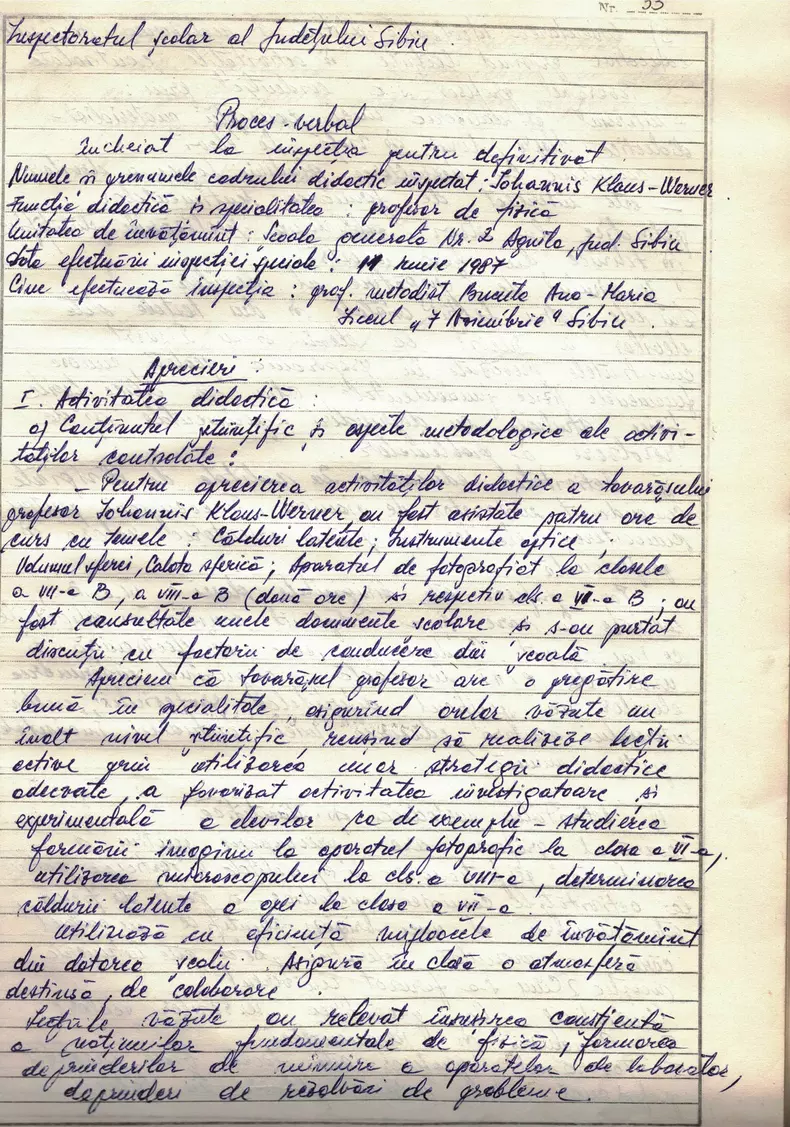 Nr. 53
Inspectoratul școlar al Județului Sibiu.
Proces-verbal
încheiat la inspecția pentru definitivat.
Numele și prenumele cadrului didactic inspectat: Iohannis Klaus-Werner
Funcția didactică și specialitatea: profesor de fizică
Unitatea de învățămînt: Școala generală Nr. 2 Agnita, jud. Sibiu
Data efectuării inspecției speciale: 11 iunie 1987
Cine efectuează inspecția: prof. metodist Ana-Maria
Liceul "7 Noiembrie" Sibiu.
Aprecieri
I. Activitatea didactică:
a) Conținutul științific și aspecte metodologice ale activi-
tăților controlate:
- Pentru aprecierea activităților didactice a tovarășului
profesor Iohannis Klaus-Werner, au fost asistate patru ore de
curs cu temele: Călduri latente; Instrumente optice,
Volumul sferei, Calota sferică; Aparatul de fotografiat la clasele
a VII-a B, a VIII-a B (două ore) și respectiv cls. a VI-a B; au
fost consultate unele documente școlare și s-au purtat
discuții cu factorii de conducere din școală.
Apreciem că tovarășul profesor are o pregătire
bună în specialitate, asigurînd orelor văzute un
înalt nivel științific, reușind să realizeze lecții
active prin utilizarea unor strategii didactice
adecvate, a favorizat activitatea investigatoare și
experimentală a elevilor ca de exemplu - studierea
formării imaginii la aparatul fotografic la clasa a VI-a,
utilizarea microscopului la cls. a VIII-a, determinarea
căldurii latente a gheții la clasa a VII-a.
Utilizează cu eficiență mijloacele de învățămînt
din dotarea școlii. Asigură în clasă o atmosferă
destinsă, de colaborare.
Lecțiile văzute au relevat însușirea conștientă
a noțiunilor fundamentale de fizică, formarea
deprinderilor de mînuire a aparatelor de laborator,
deprinderi de rezolvări de probleme.